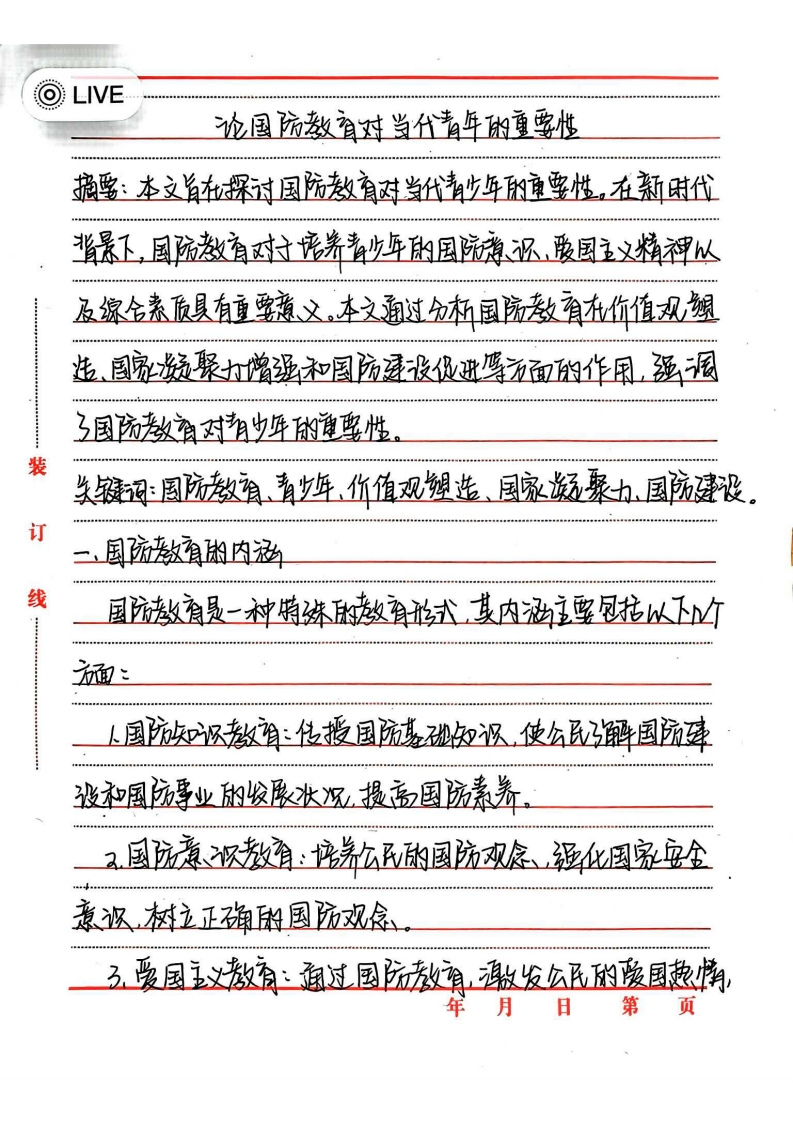 LIVE
论国防教育对当代青年的重要性
摘要：本文旨在探讨国防教育对当代青少年的重要性。在新时代
背景下，国防教育对于培养青少年的国防意识、爱国主义精神以
及综合素质具有重要意义。本文通过分析国防教育在价值观塑
造、国家凝聚力增强和国防建设促进等方面的作用，强调
了国防教育对青少年的重要性。
关键词：国防教育、青少年、价值观塑造、国家凝聚力、国防建设。
一、国防教育的内涵
国防教育是一种特殊的教育形式，其内涵主要包括以下几个
方面：
1.国防知识教育：传授国防基础知识，使公民了解国防建
设和国防事业的发展状况，提高国防素养。
2.国防意识教育：培养公民的国防观念、强化国家安全
意识，树立正确的国防观念。
3.爱国主义教育：通过国防教育，激发公民的爱国热情，
装
订
线
年 月 日 第 页